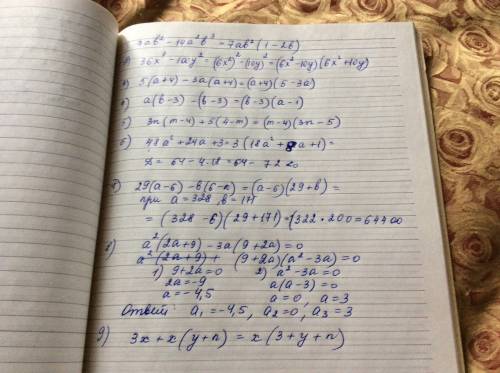 7ab² - 14a²b³ = 7ab²(1-2b)
2) 36x⁴ - 10y² = (6x²)² - (10y)² = (6x² - 10y)(6x² + 10y)
3) 5(a+4) - 3a(a+4) = (a+4)(5-3a)
4) a(b-3) - (b-3) = (b-3)(a-1)
5) 3n(m-4) + 5(4-m) = (m-4)(3n-5)
6) 48a² + 24a + 3 = 3(18a² + 8a + 1) =
D = 64 - 4·18 = 64 - 72 < 0
7) 29(a-6) - b(6-a) = (a-6)(29+b) =
при a = 328, b = 171
= (328 - 6)(29 + 171) = 322 · 200 = 64400
8) a²(2a+9) - 3a(9+2a) = 0
a²(2a+9) + (9+2a)(a²-3a) = 0
1) 9+2a=0 2) a²-3a=0
2a=-9 a(a-3)=0
a=-4,5 a=0, a=3
Ответ: a₁=-4,5, a₂=0, a₃=3
9) 3x + x(y+n) = x(3+y+n)